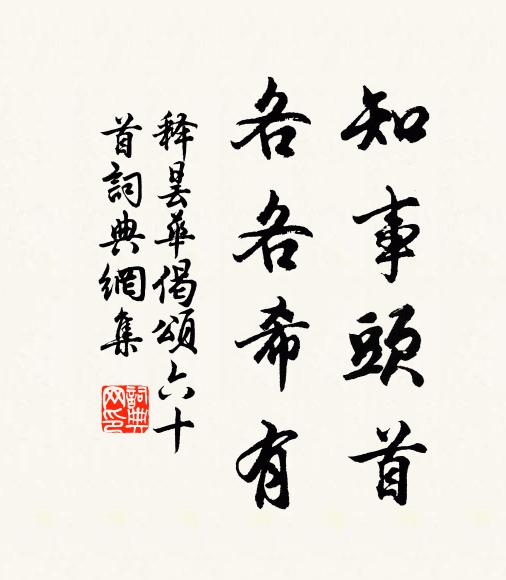 知事頭首
各各希有
释曇華偈頌六十
首詞典網集
詞典
网印